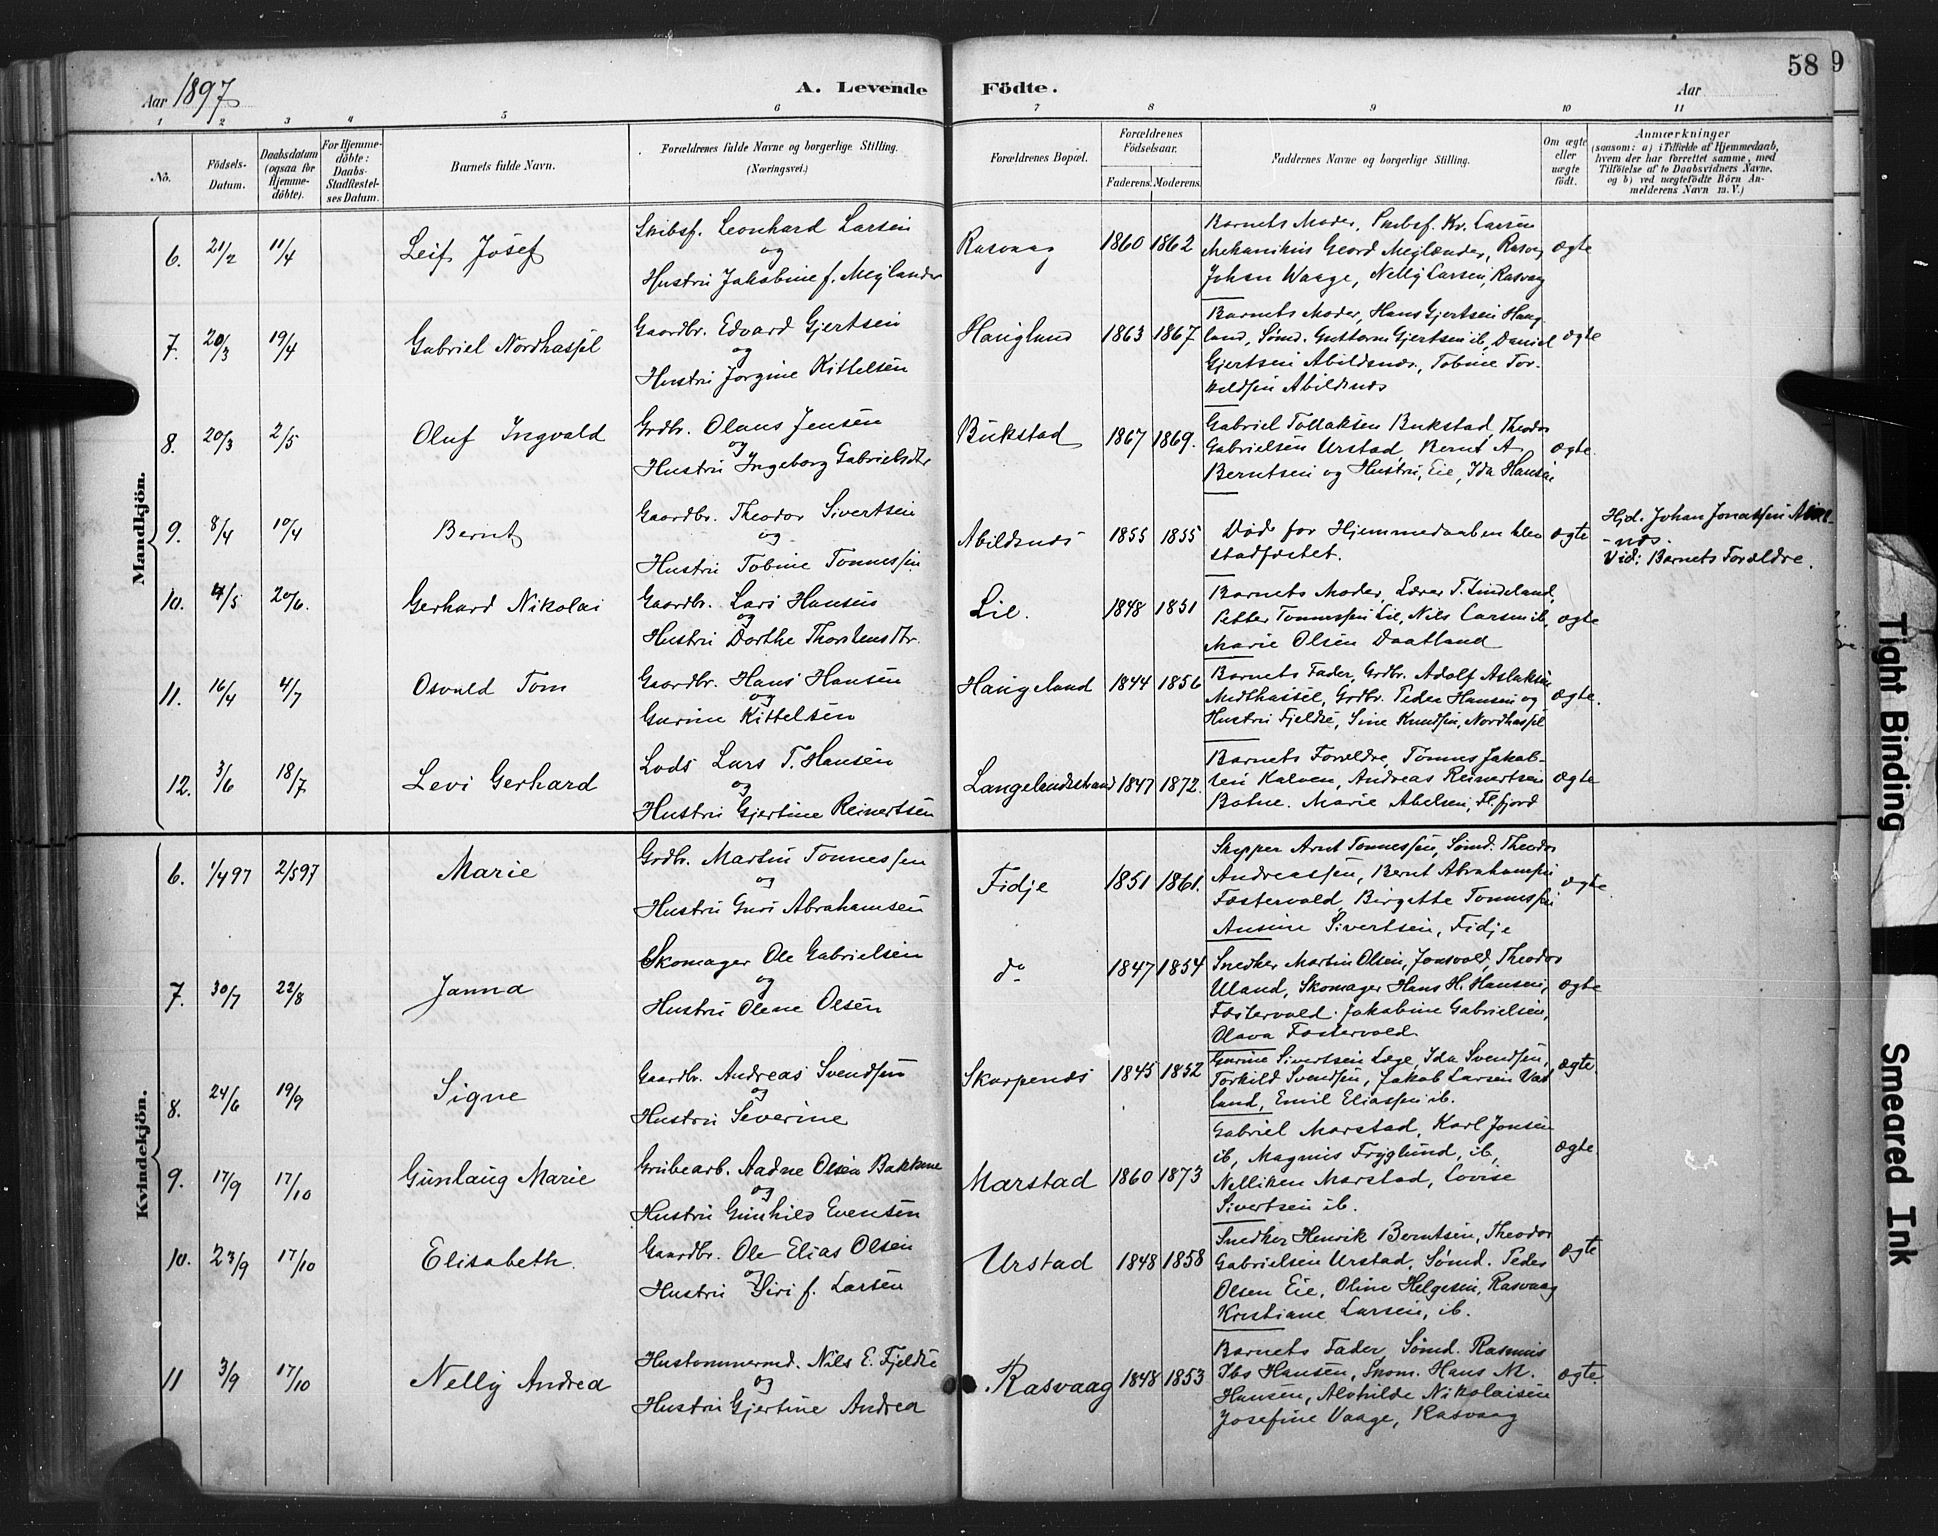 Aar 1897
A. Levende
Födte.
Aar
58
9
1 2 3 4 5 6 7 8 9 10 11
No.
Födsels-
Datum.
Daabsdatum
(ogsaa for
Hjemme-
döbte).
For Hjemme-
döbte:
Daabs-
Stadfæstel-
ses Datum.
Barnets fulde Navn.
Forældrenes fulde Navne og borgerlige Stilling.
(Næringsvei.)
Forældrenes Bopæl.
Forældrenes
Födselsaar.
Faderens. Moderens.
Faddernes Navne og borgerlige Stilling.
Om ægte
eller
uægte
födt.
Anmærkninger
(saasom: a) i Tilfælde af Hjemmedaab,
hvem der har forrettet samme, med
Tilföielse af to Daabsvidners Navne,
og b) ved uægtefödte Börn An-
melderens Navn m. V.)
Mandkjön.
6. 21/2 11/4 Leif Josef
Skibsf. Leonhard Larsen
og
Hustru Jakobine f. Mejlander
Rasvaag 1860 1862
Barnets Moder, Skibsf. Kr. Larsen
Mekanikus Georg Mejlænder, Rasvag
Johan Waage, Nelly Larsen, Rasvaag
ægte
7. 20/3 19/4 Gabriel Nordhassel
Gaardbr. Edvard Gjertsen
og
Hustru Jorgine Kittelsen
Hauglund 1863 1867
Barnets Moder, Hans Gjertsen Haug-
land, Sømd. Guttorm Gjertsen ib, Daniel
Gjertsen Abildsnæs, Tobine Tor-
keldsen Abildsnæs
ægte
8. 20/3 2/5 Oluf Ingvald
Grdbr. Olaus Jensen
og
Hustru Ingeborg Gabrielsdtr
Bukstad 1867 1869.
Gabriel Tollaksen Bukstad, Theodor
Gabrielsen Urstad, Bernt A
Berntsen og Hustru, Eie, Ida Hansen
ægte
9. 8/4 10/4 Bernt
Gaardbr. Theodor Sivertsen
og
Hustru Tobine Tonnessen
Abildsnæs 1855 1855
Døde før Hjemmedaaben blev
stadfæstet.
ægte
Hjd. Johan Jonassen
-næs.
Vid: Barnets Forældre.
10. 4/5 20/6. Gerhard Nikolai
Gaardbr. Lars Hansen
og
Hustru Dorthe Thorstensdtr.
Lie. 1848 1851
Barnets Moder, Lærer T. Lindeland,
Petter Tonnessen Lie, Nils Larsen ib,
Marie Olsen Daatland
ægte
11. 16/4 4/7 Osvald Tom
Gaardbr. Hans Hansen
og
Gurine Kittelsen
Haugeland 1844 1856
Barnets Fader, Grdbr. Adolf Aslaksen
Midthassel, Grdbr. Peder Hansen og
Hustru Fjeldse, Sine Knudsen, Nordhassel
ægte.
12. 3/6 18/7 Levi Gerhard
Lods Lars T. Hansen
og
Hustru Gjertine Reinertsen
Langelandsstrand 1847 1872.
Barnets Forældre, Tonnes Jakob-
sen Kalven, Andreas Reinertsen
Botne. Marie Abelsen, Fl.fjord
ægte
Kvindekjön.
6. 1/4 97 2/5 97 Marie
Grdbr. Martin Tonnessen
og
Hustru Guri Abrahamsen
Fidje 1851 1861.
Skipper Arnt Tonnessen, Sømd. Theodor
Andreassen, Bernt Abrahamsen
Fostervold, Birgitte Tonnessen
Ansine Sivertsen, Fidje
ægte
7. 30/7 22/8 Janna
Skomager Ole Gabrielsen
og
Hustru Olene Olsen
do 1847 1854
Snedker Martin Olsen, Jonsvold, Theodor
Uland, Skomager Hans H. Hansen,
Fostervold. Jakobine Gabrielsen,
Olava Fostervold
ægte
8. 24/6 19/9 Signe
Gaardbr. Andreas Svendsen
og
Hustru Severine
Skarpenæs 1845 1852
Gurine Sivertsen Læge, Ida Svendsen,
Torkild Svendsen, Jakob Larsen Vad-
land, Emil Eliassen ib.
ægte.
9. 17/9 17/10 Gunlaug Marie
Grubearb. Aadne Olsen Bakkene
og
Hustru Gunhild Evensen
Marstad 1860 1873
Gabriel Marstad, Karl Jonsen
ib, Magnus Fryglund, ib,
Nelliken Marstad, Lovise
Sivertsen ib.
ægte.
10. 23/9 17/10 Elisabeth.
Gaardbr. Ole Elias Olsen
og
Hustru Siri f. Larsen
Urstad 1848 1858
Snedker Henrik Berntsen, Theodor
Gabrielsen Urstad, Sømd. Peder
Olsen Eie, Oline Helgesen, Rasvaag
Kristiane Larsen, ib.
ægte
11 3/9 17/10 Nelly Andrea
Hustømmermd. Nils E. Fjeldse
og
Hustru Gjertine Andrea
Rasvaag 1848 1853
Barnets Fader, Sømd. Rasmus
Ibs Hansen, Skom. Hans M.
Hansen, Alvhilde Nikolaisen
Josefine Vaage, Rasvaag
ægte.
Tight Binding
Smeared Ink